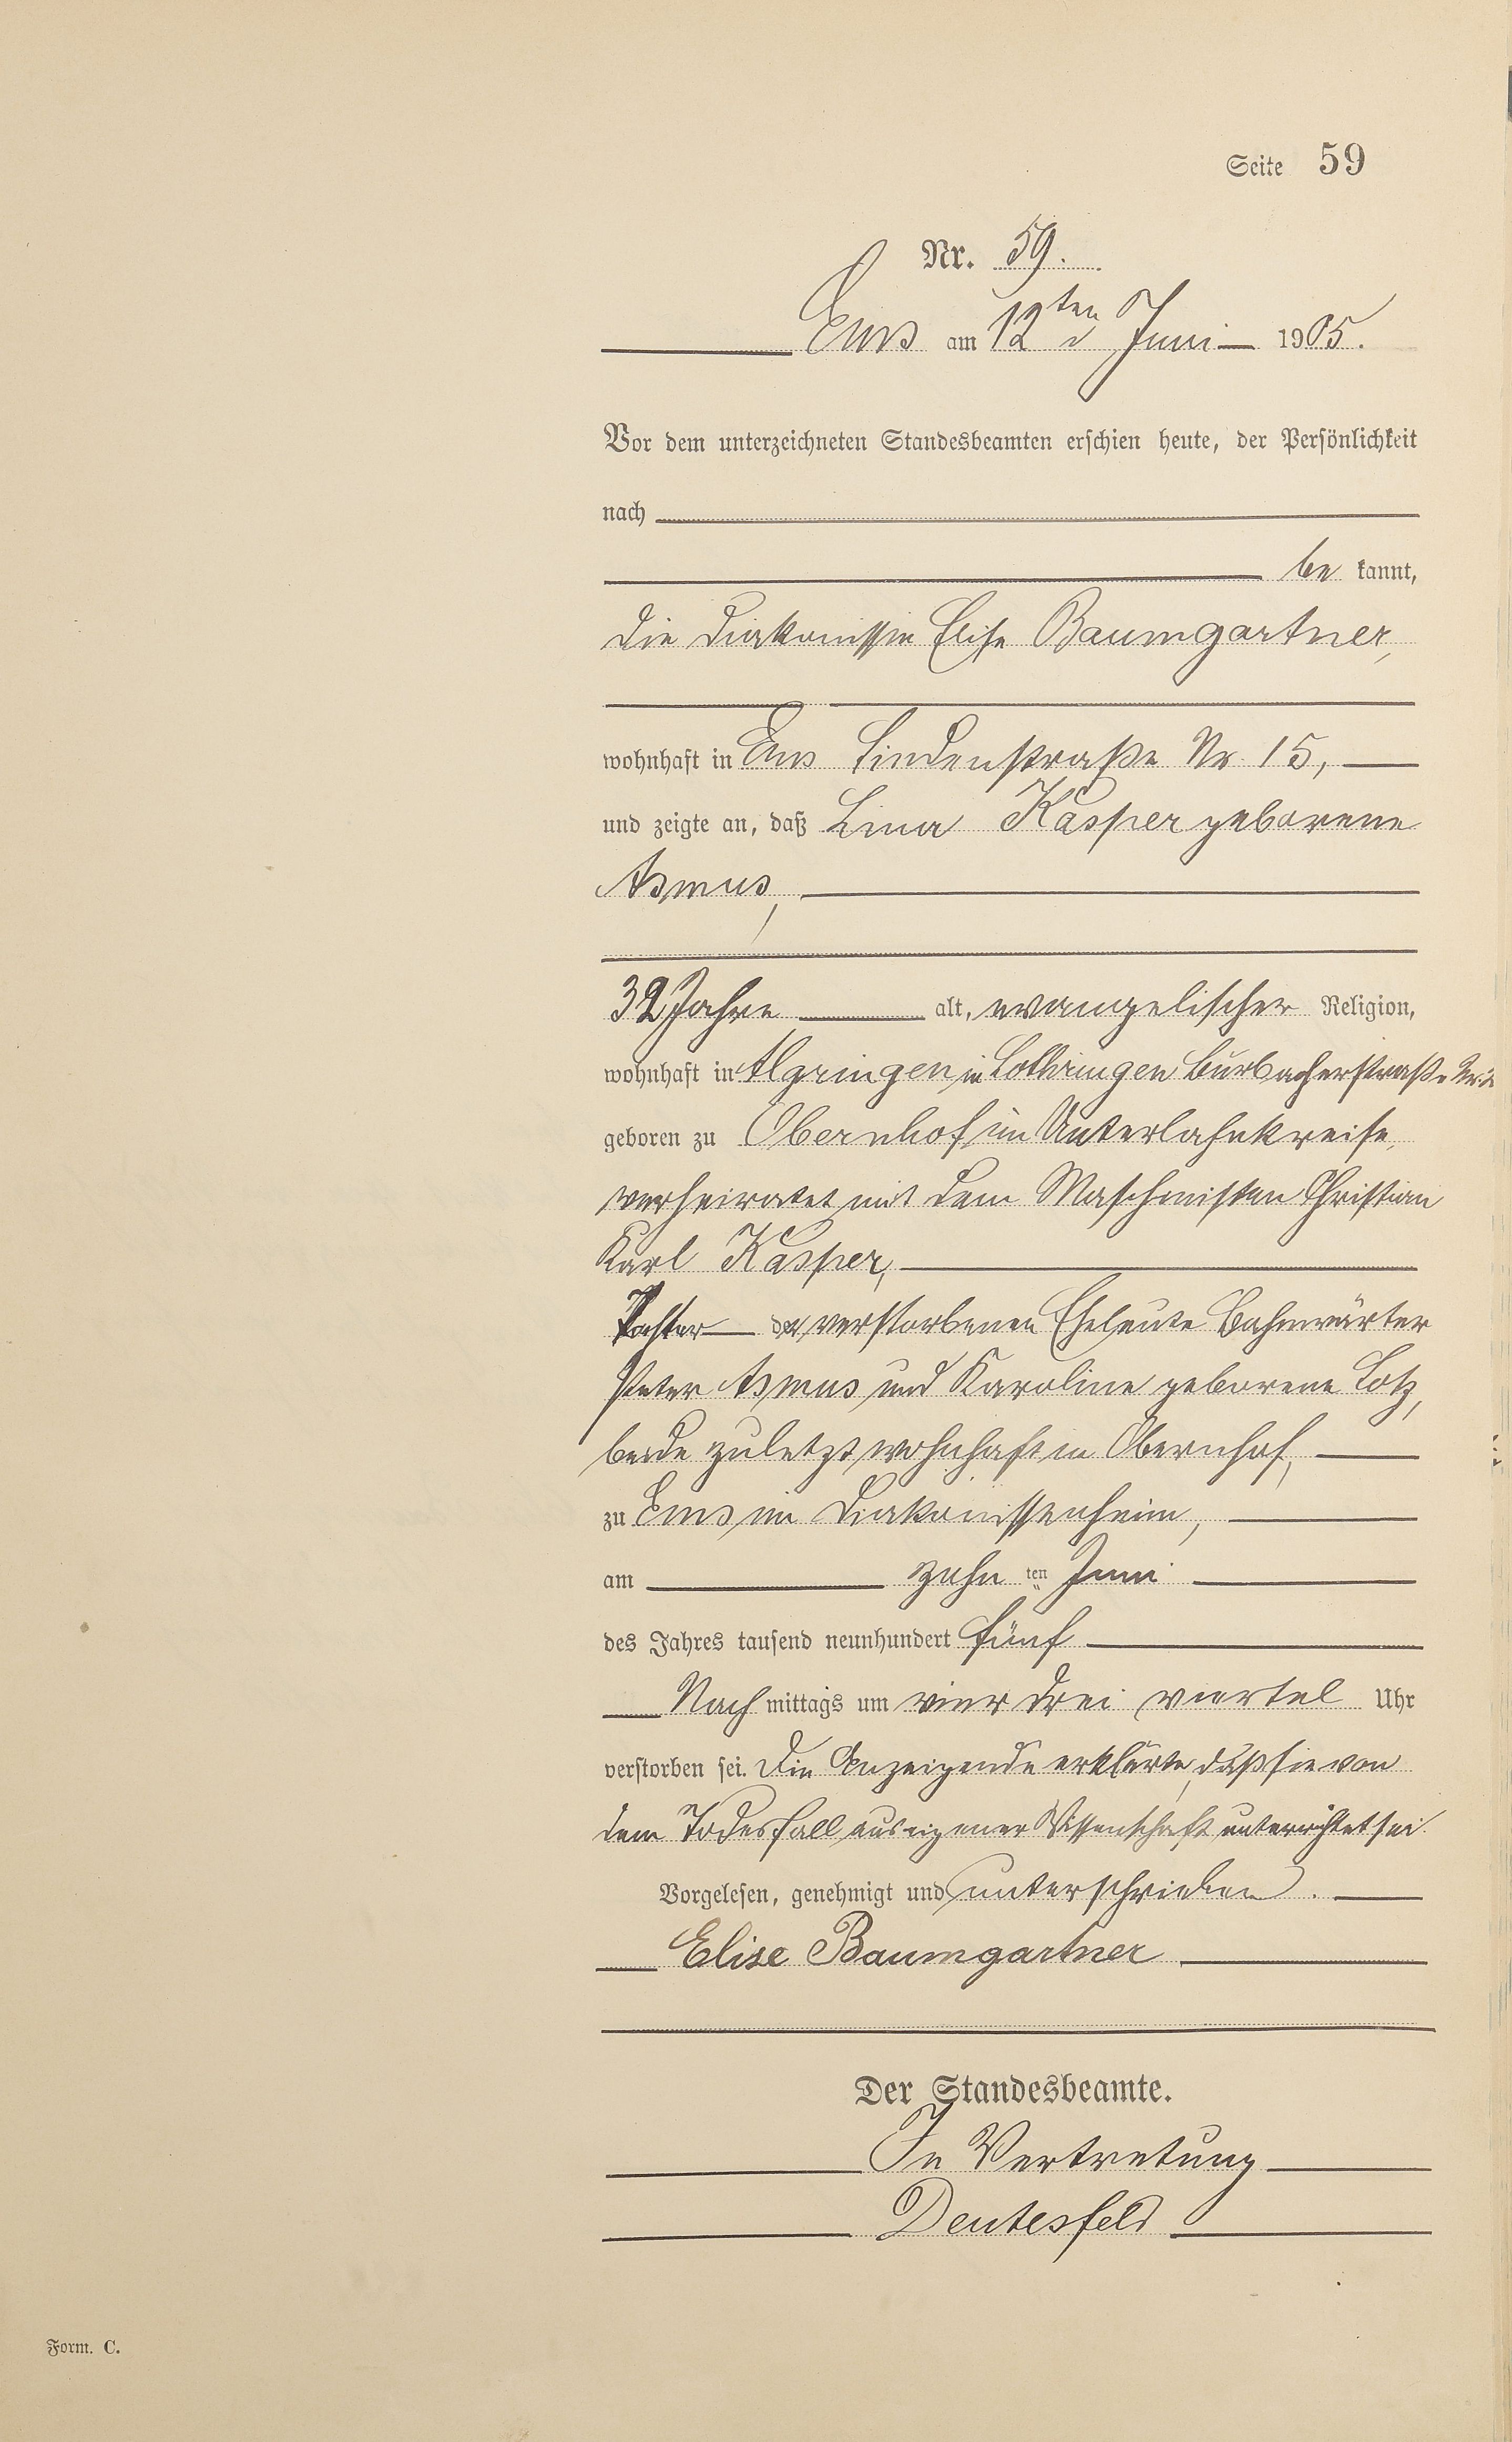 Seite 59
Nr. 59.
Ems am 12ten Juni 1905.
Vor dem unterzeichneten Standesbeamten erschien heute, der Persönlichkeit
nach
be kannt,
die Diakonissin Elise Baumgartner,
wohnhaft in Ems Lindenstraße Nr. 15,
und zeigte an, daß Lina Kasper geborene
Asmus,
32 Jahre alt, evangelischer Religion,
wohnhaft in Algringen in Lothringen Burbacherstraße Nr.
geboren zu Obernhof im Unterlahnkreise,
verheiratet mit dem Maschinisten Christian
Karl Kasper,
Tochter der verstorbenen Eheleute Bahnwärter
Peter Asmus und Karoline geborene Lotz,
beide zuletzt wohnhaft in Obernhof,
zu Ems im Diakonissenheim,
am zehn ten Juni
des Jahres tausend neunhundert fünf
Nach mittags um vier drei viertel Uhr
verstorben sei. Die Anzeigende erklärte, daß sie von
dem Todesfall aus eigener Wissenschaft unterrichtet sei.
Vorgelesen, genehmigt und unterschrieben.
Elise Baumgartner
Der Standesbeamte.
In Vertretung
Deutesfeld
Form. C.